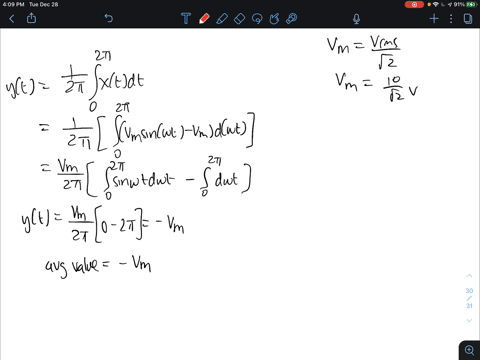 4:09 PM Tue Dec 28
91%
y(t) = 1/2π ∫₀^2π x(t)dt
= 1/2π [ ∫₀^2π (Vm sin(ωt) - Vm) d(ωt) ]
= Vm/2π [ ∫₀^2π sinωt dωt - ∫₀^2π dωt ]
y(t) = Vm/2π [0 - 2π] = - Vm
avg value = - Vm
Vm = Vrms/√2
Vm = 10/√2 V
30
/
31